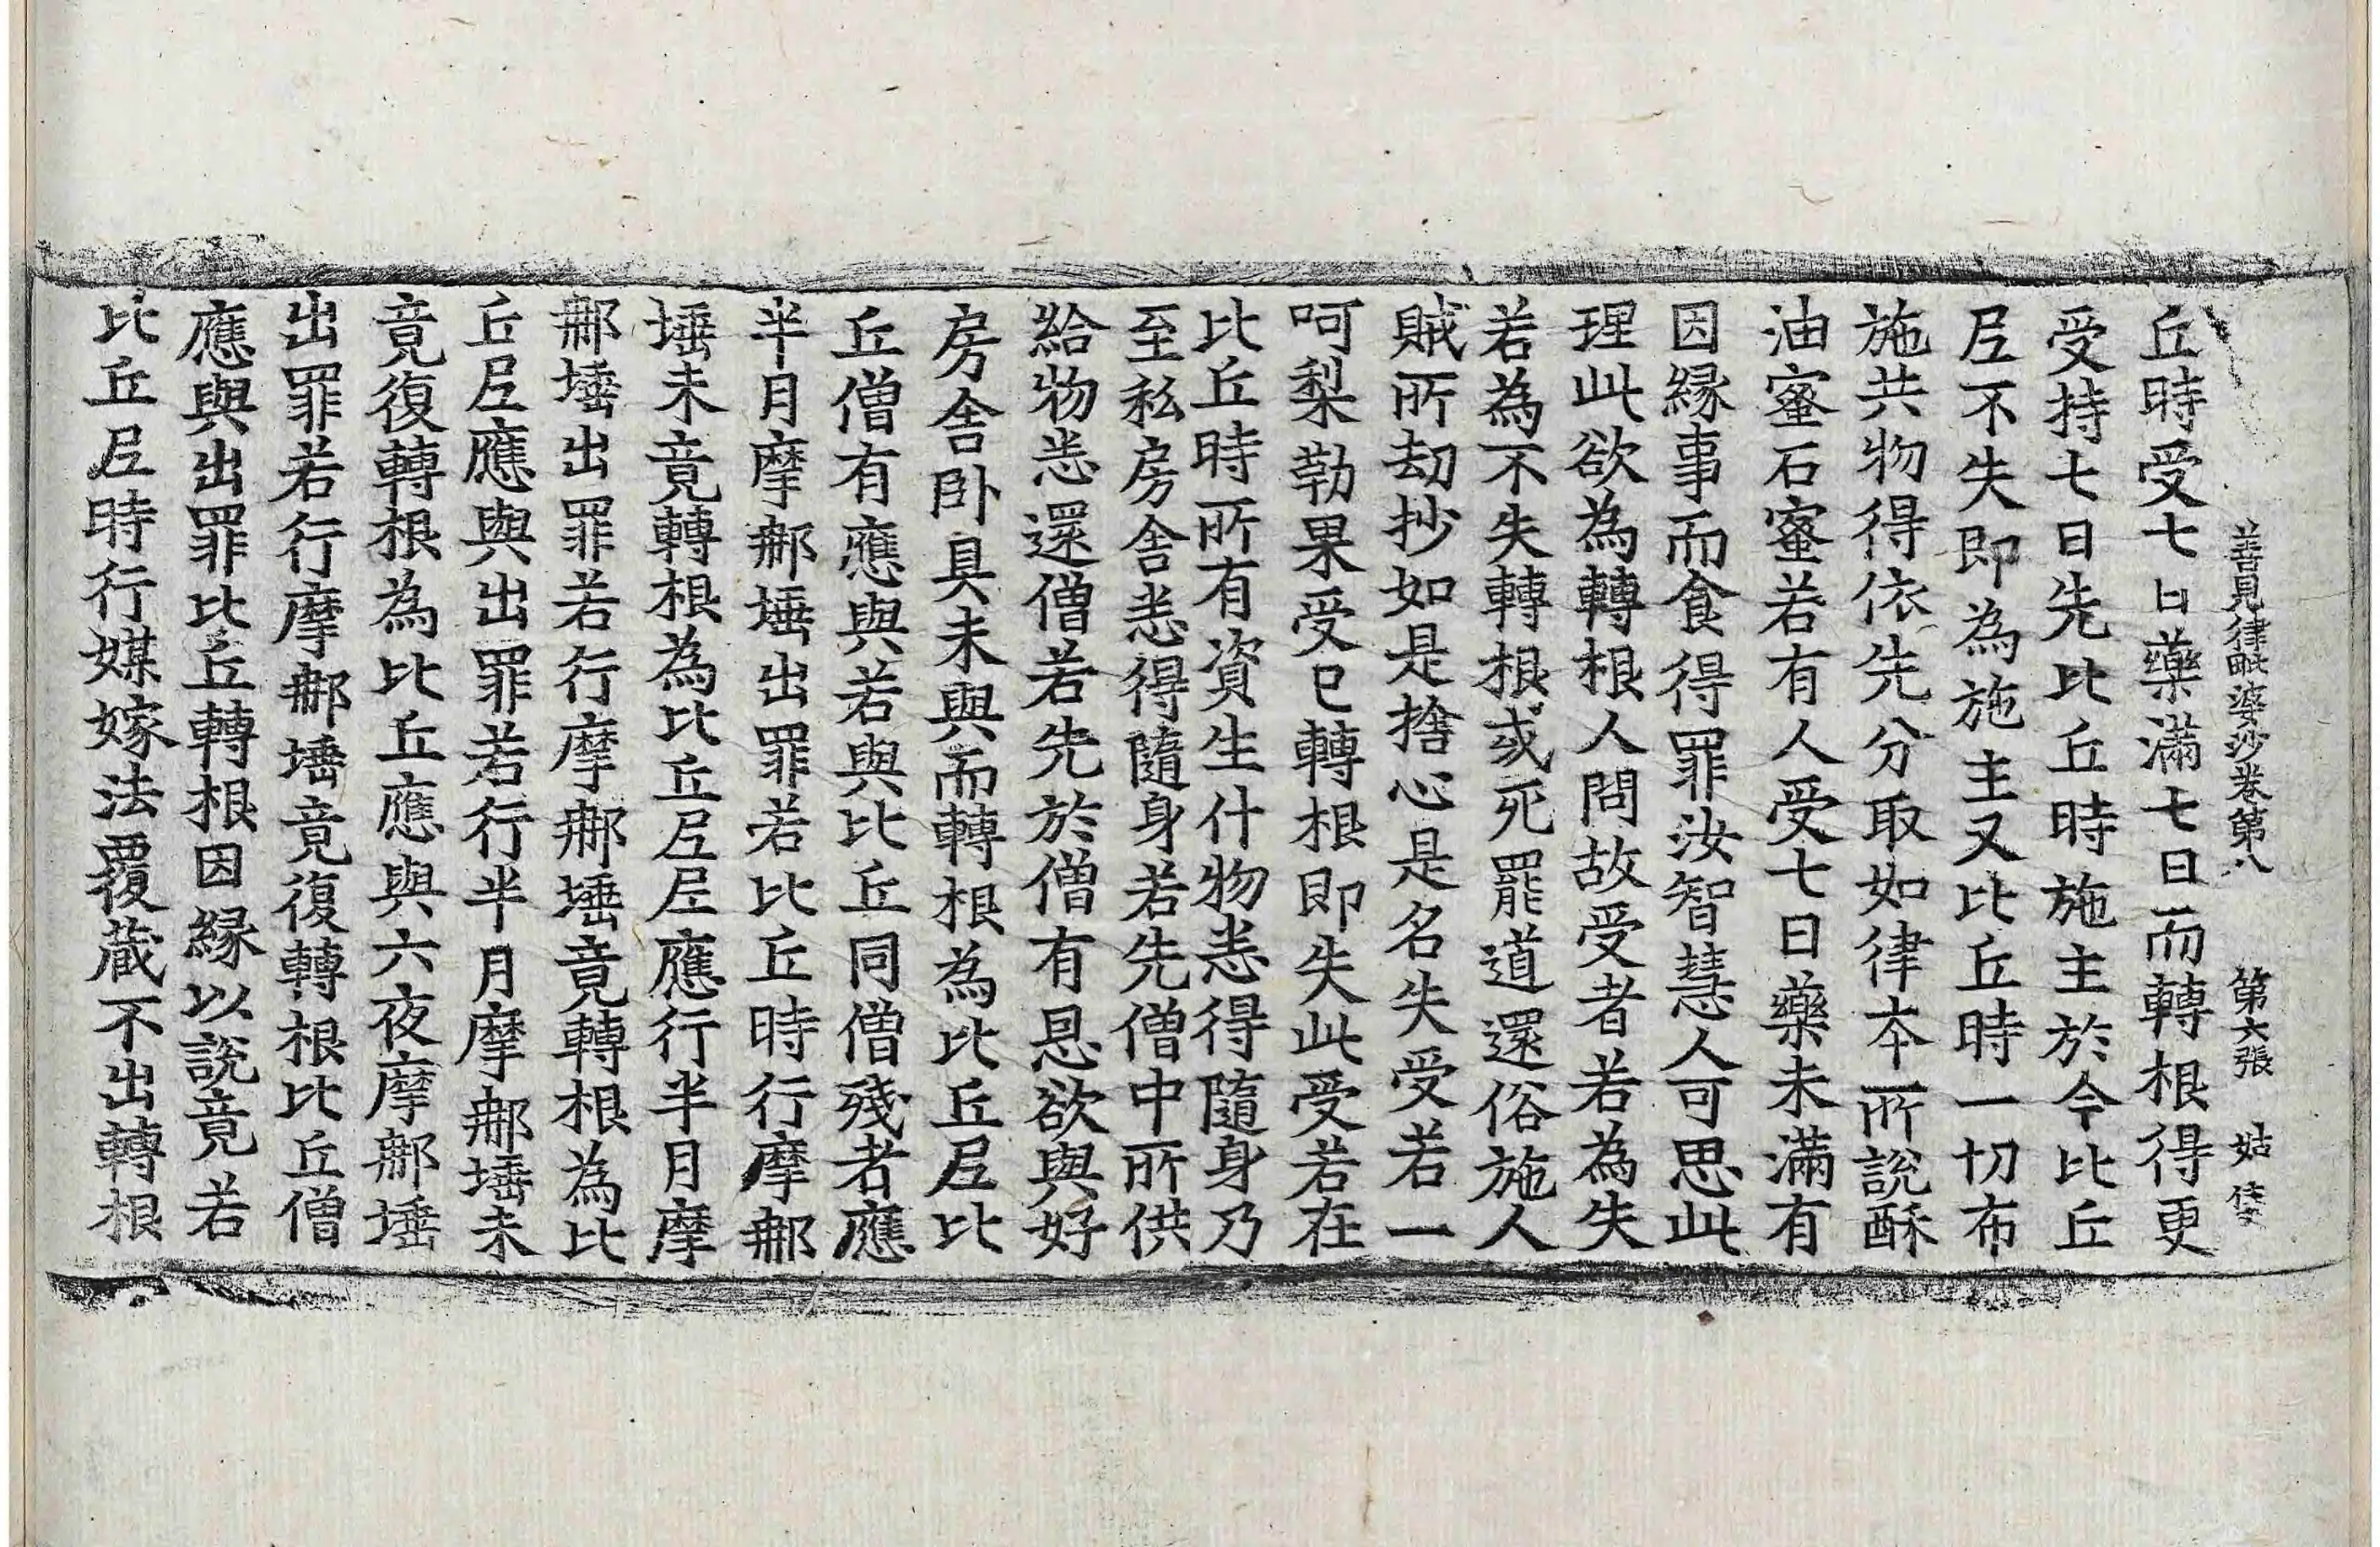 善見律毗婆沙卷第八　第六張　姑
丘時受七日藥滿七日而轉根得更
受持七日先比丘時施主於今比丘
𡰱不失即為施主又比丘時一切布
施共物得依先分取如律本所說酥
油蜜石蜜若有人受七日藥未滿有
因緣事而食得罪汝智慧人可思此
理此欲為轉根人問故受者若為失
若為不失轉根或死罷道還俗施人
賊所劫抄如是捨心是名失受若一
呵梨勒果受已轉根即失此受若在
比丘時所有資生什物恙得隨身乃
至私房舍恙得隨身若先僧中所供
給物恙還僧若先於僧有恩欲與好
房舍卧具未與而轉根為比丘𡰱比
丘僧有應與若與比丘同僧殘者應
半月摩那埵出罪若比丘時行摩那
埵未竟轉根為比丘𡰱𡰱應行半月摩
那埵出罪若行摩那埵竟轉根為比
丘𡰱應與出罪若行半月摩那埵未
竟復轉根為比丘應與六夜摩那埵
出罪若行摩那埵竟復轉根比丘僧
應與出罪比丘轉根因緣以說竟若
比丘𡰱時行媒嫁法覆藏不出轉根